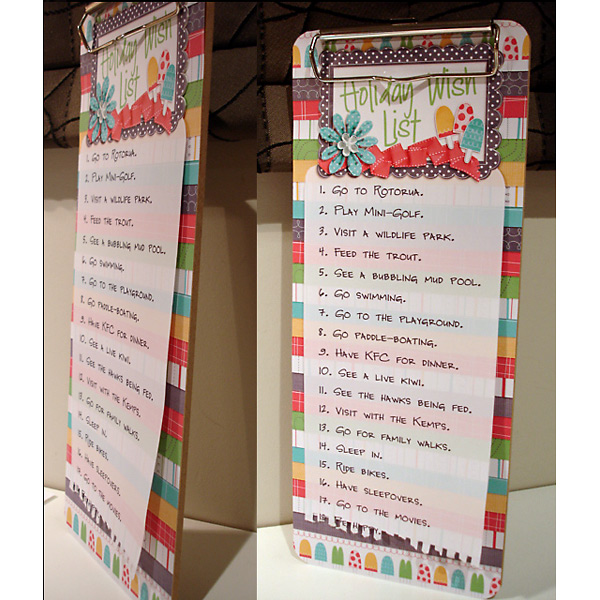 Holiday Wish
List
1. Go to Rotoria.
2. Play Mini-Golf.
3. Visit a wildlife park.
4. Feed the trout.
5. See a bubbling mud pool.
6. Go swimming.
7. Go to the playground.
8. Go paddle-boating.
9. Have KFC for dinner.
10. See a live kiwi.
11. See the hawks being fed.
12. Visit with the Kemps.
13. Go for family walks.
14. Sleep in.
15. Ride bikes.
16. Have sleepovers.
17. Go to the movies.
Holiday Wish
List
1. Go to Rotorua.
2. Play Mini-Golf.
3. Visit a wildlife park.
4. Feed the trout.
5. See a bubbling mud pool.
6. Go swimming.
7. Go to the playground.
8. Go paddle-boating.
9. Have KFC for dinner.
10. See a live kiwi.
11. See the hawks being fed.
12. Visit with the Kemps.
13. Go for family walks.
14. Sleep in.
15. Ride bikes.
16. Have sleepovers.
17. Go to the movies.
18. Be happy.